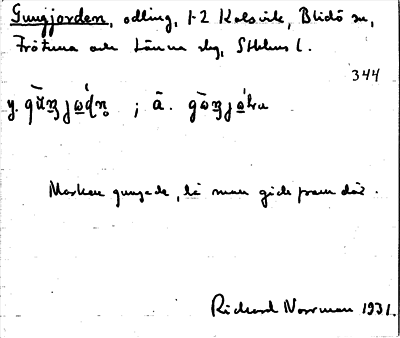 Gungjorden, odling, 1-2 Kolsvik, Blidö sn,
Frötuna och Länna skg, Sthlms l.
344
y. ; ā.
Marken gungade, då man gick fram där.
Richard Norrman 1931.